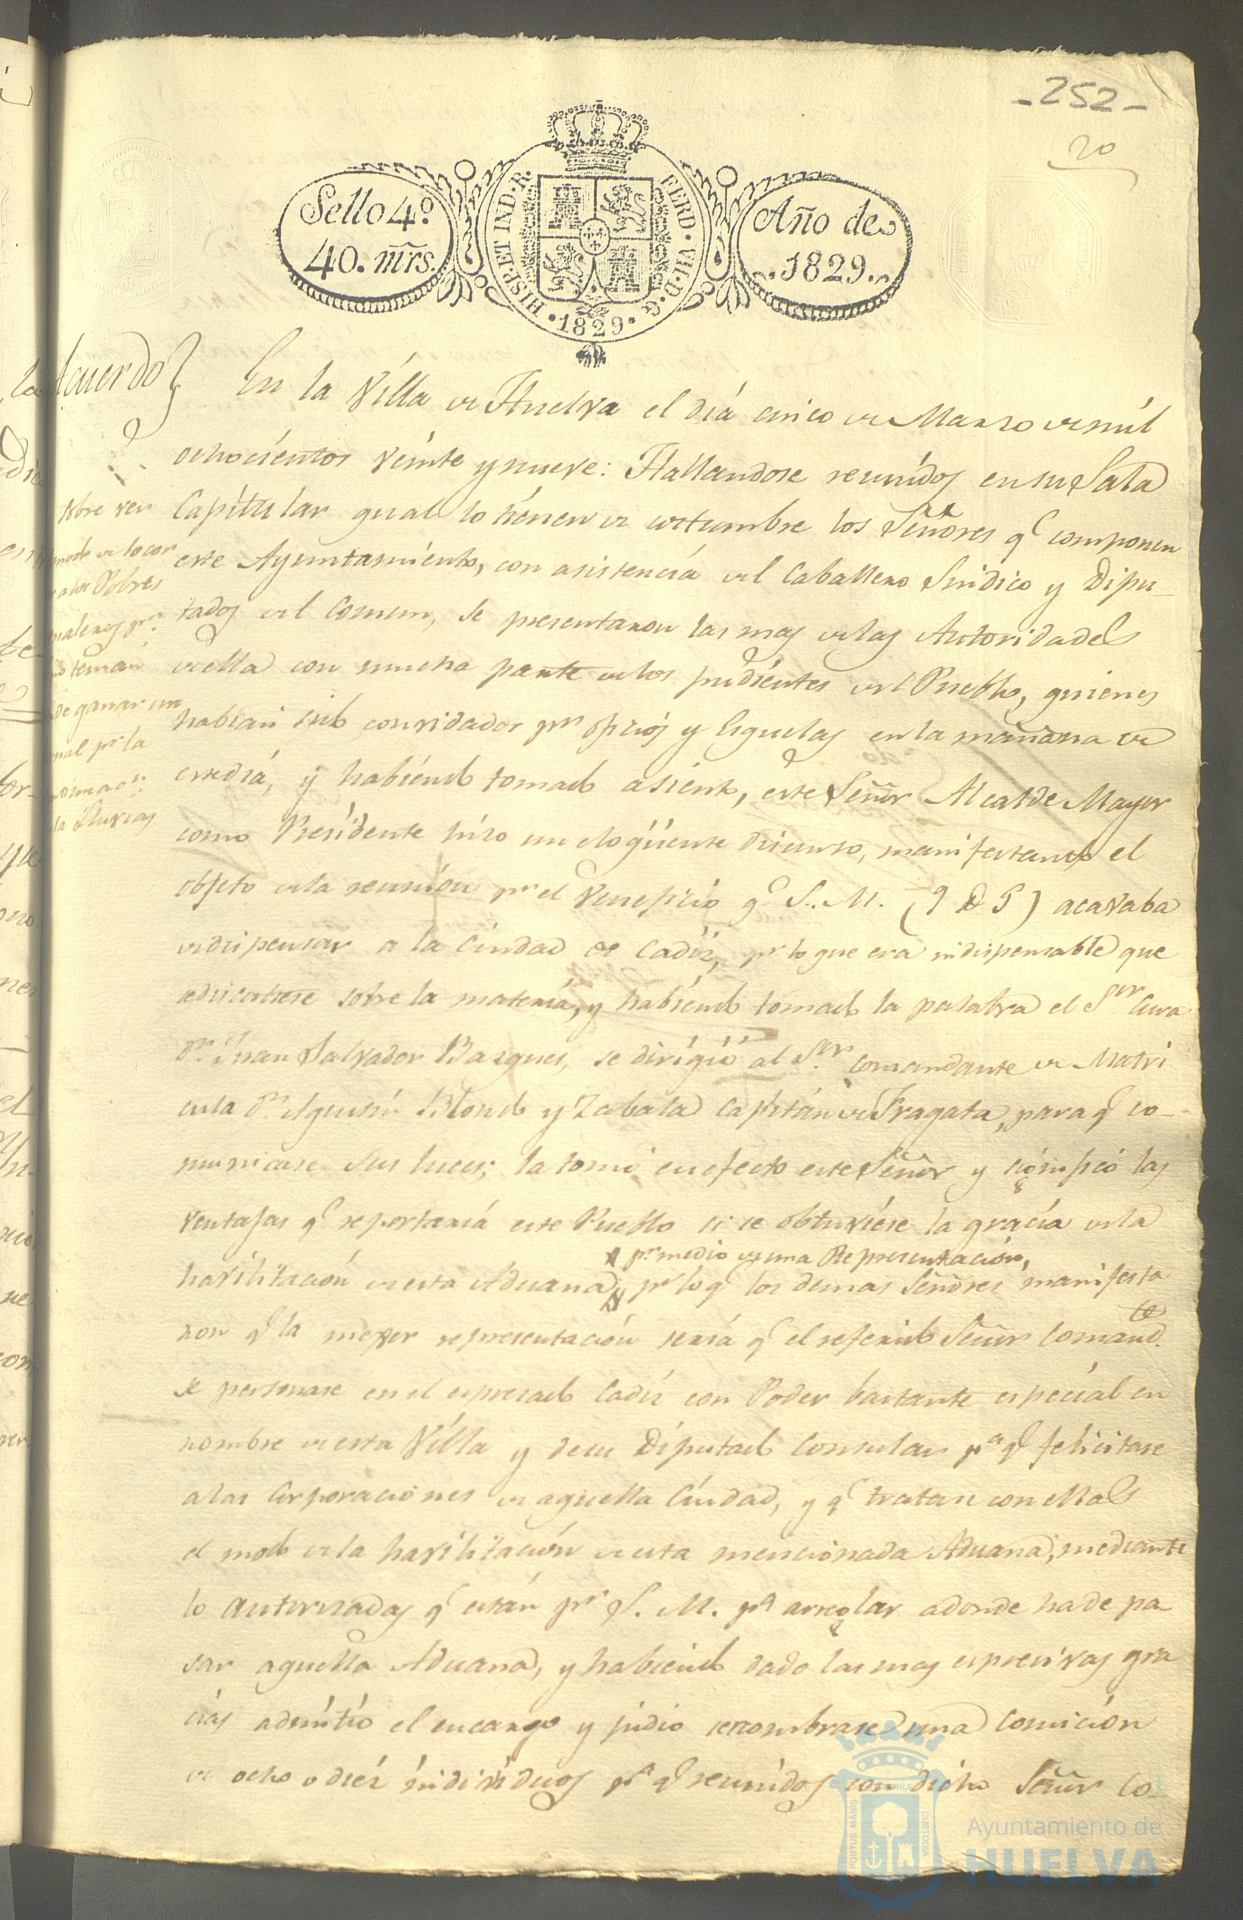 -252-
20
Sello 4º
40. mrs.
HISP. ET IND. R.
FERD. VII. D. G.
1829
Año de
1829.
Acuerdo
En la Villa de Huelva el día cinco de Marzo de mil
ochocientos veinte y nueve: Hallandose reunidos en su Sala
Capitular qual lo tienen de costumbre los Señores q.e componen
este Ayuntamiento, con asistencia del Caballero Sindico y Dipu-
tados del Comun, se presentaron las mas de las Autoridades
de ella con mucha parte de los pudientes del Pueblo, quienes
habian sido convidados p.r oficios y Esquelas en la mañana de
este dia, y habiendo tomado asiento, este Señor Alcalde Mayor
como Presidente hizo un eloqüente discurso, manifestando el
objeto de la reunion p.r el veneficio q.e S. M. (q D G) acavaba
de dispensar a la Ciudad de Cadiz, p.r lo que era indispensable que
se discutiese sobre la materia, y habiendo tomado la palabra el S.or Cura
D.n Juan Salvador Bazques, se dirigió al S.or Comandante de Matri
cula D.n Agustin Blondo y Zabala Capitan de Fragata, para q.e co-
municase sus luces; la tomó en efecto este Señor y significó las
ventajas q.e reportaria este Pueblo si se obtuviese la gracia de la
p.r medio de una Representación,
havilitación de esta Aduana, p.r lo q.e los demas Señores manifesta
ron q.e la mejor representación seria q.e el referido Señor Comand.te
se personase en el espresado Cadiz con Poder bastante especial en
nombre de esta Villa y de su Diputado Consular p.a q.e felicitase
a las Corporaciones de aquella Ciudad, y q.e tratase con ellas
el modo de la havilitación de esta mencionada Aduana, mediante
lo autorizadas q.e están p.r S. M. p.a arreglar adonde ha de pa
sar aquella Aduana, y habiendo dado las mas espresivas gra
cias admitio el encargo y pidio se nombrase una Comición
de ocho o diez individuos p.a q.e reunidos con dicho Señor Co-
sobre ven
a los Pobres
teman
de ganar un
p.r la
Lluvias
PORTUS MARIS
CUSTODIA
Ayuntamiento de
HUELVA